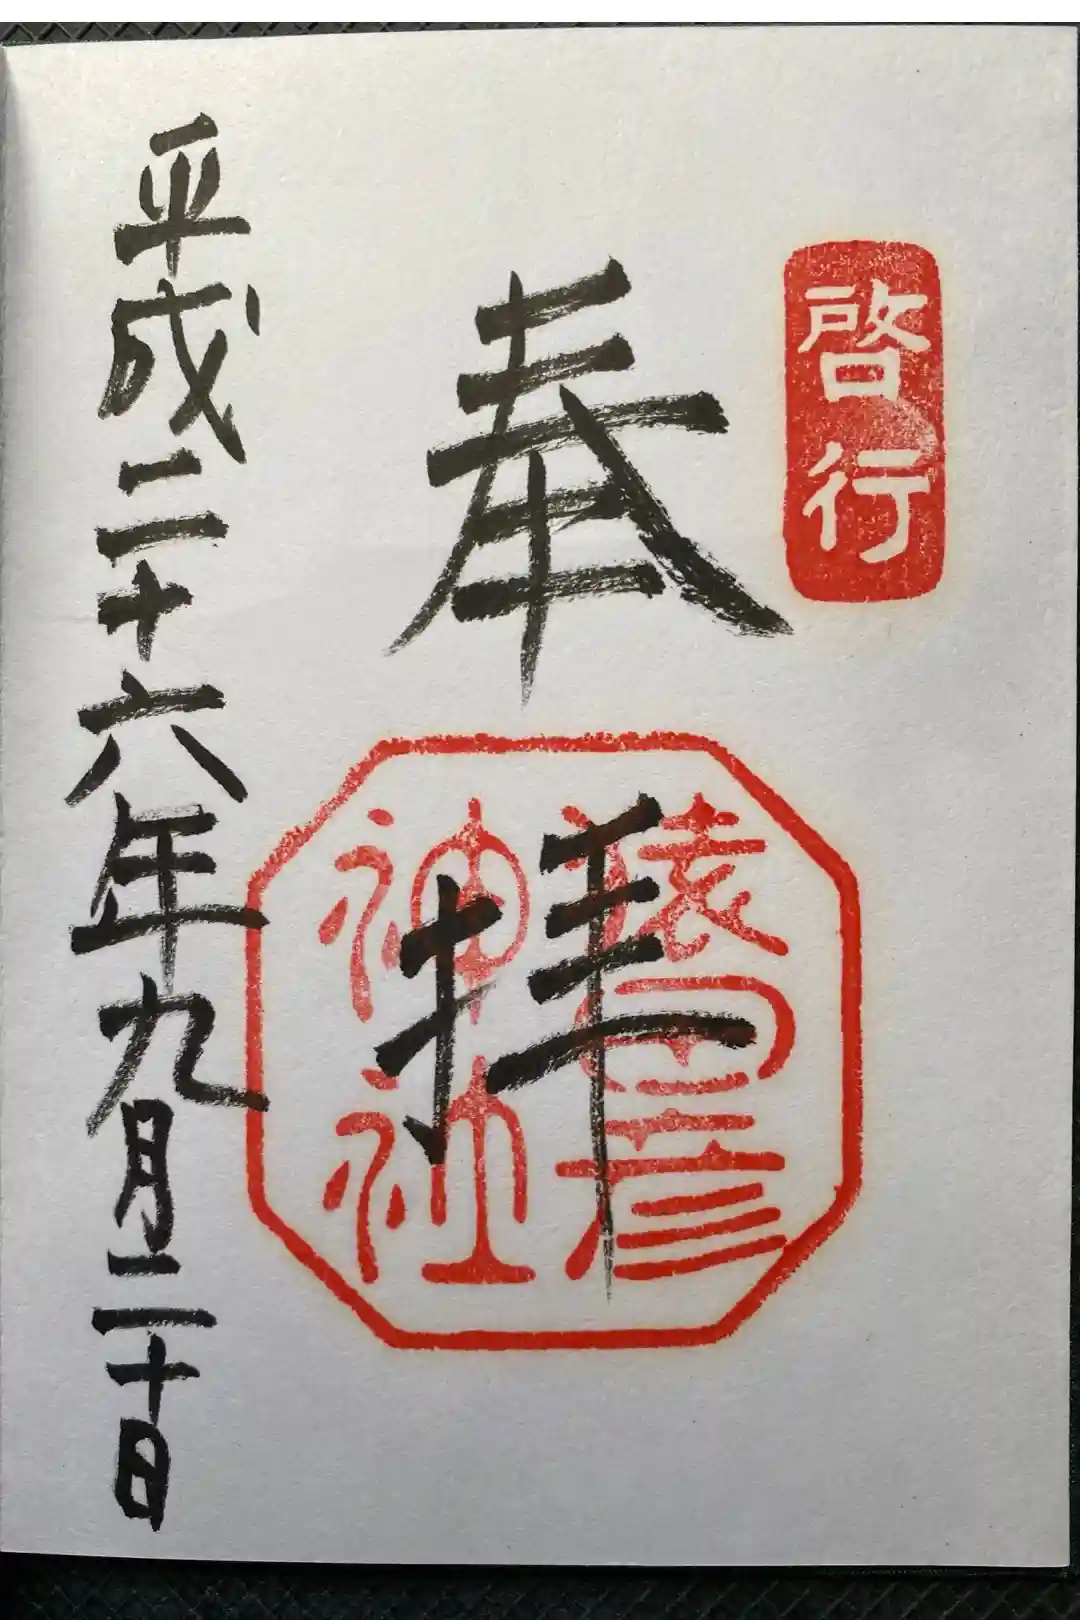 啓行
奉拝
猿田彦
神社
平成二十六年九月二十日